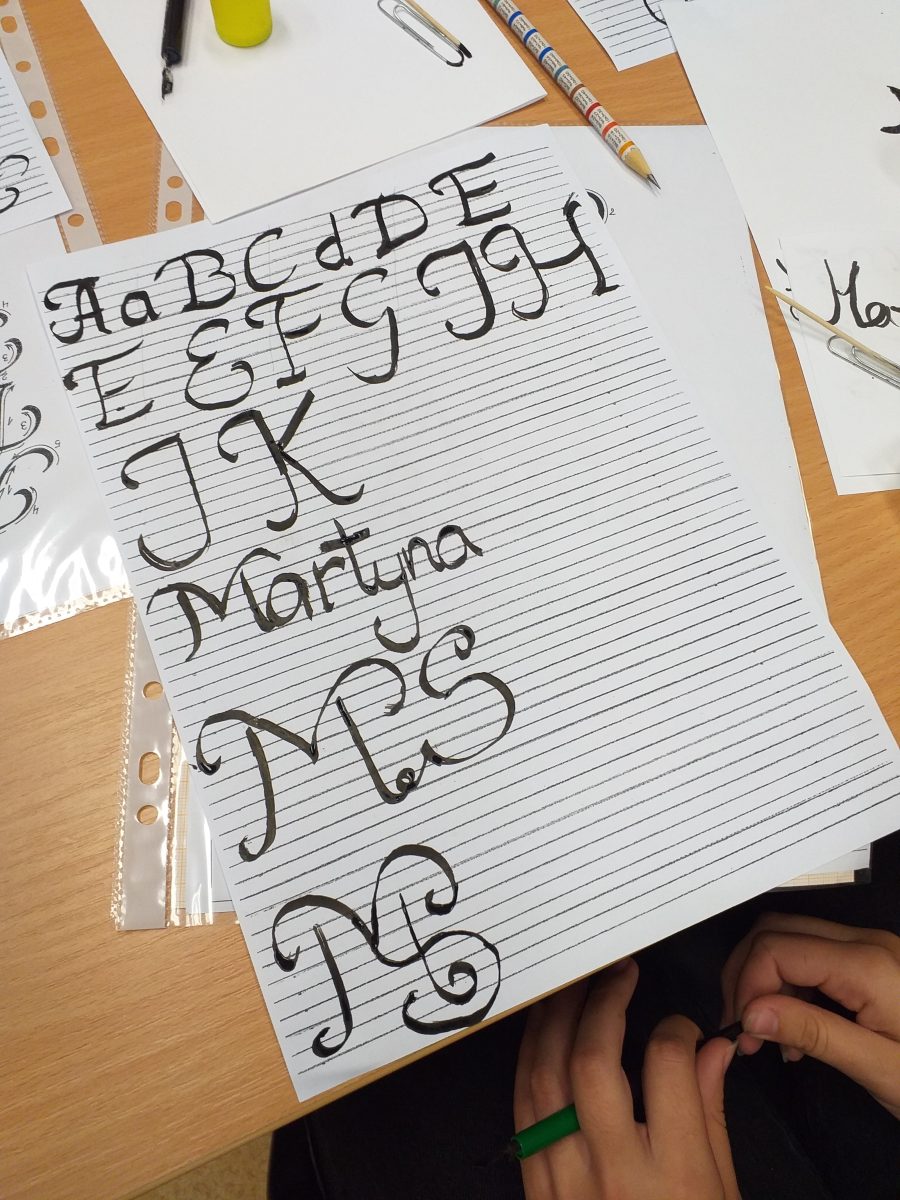 A a B C d D E
E E F G J H
J K
Martyna
MS
MS